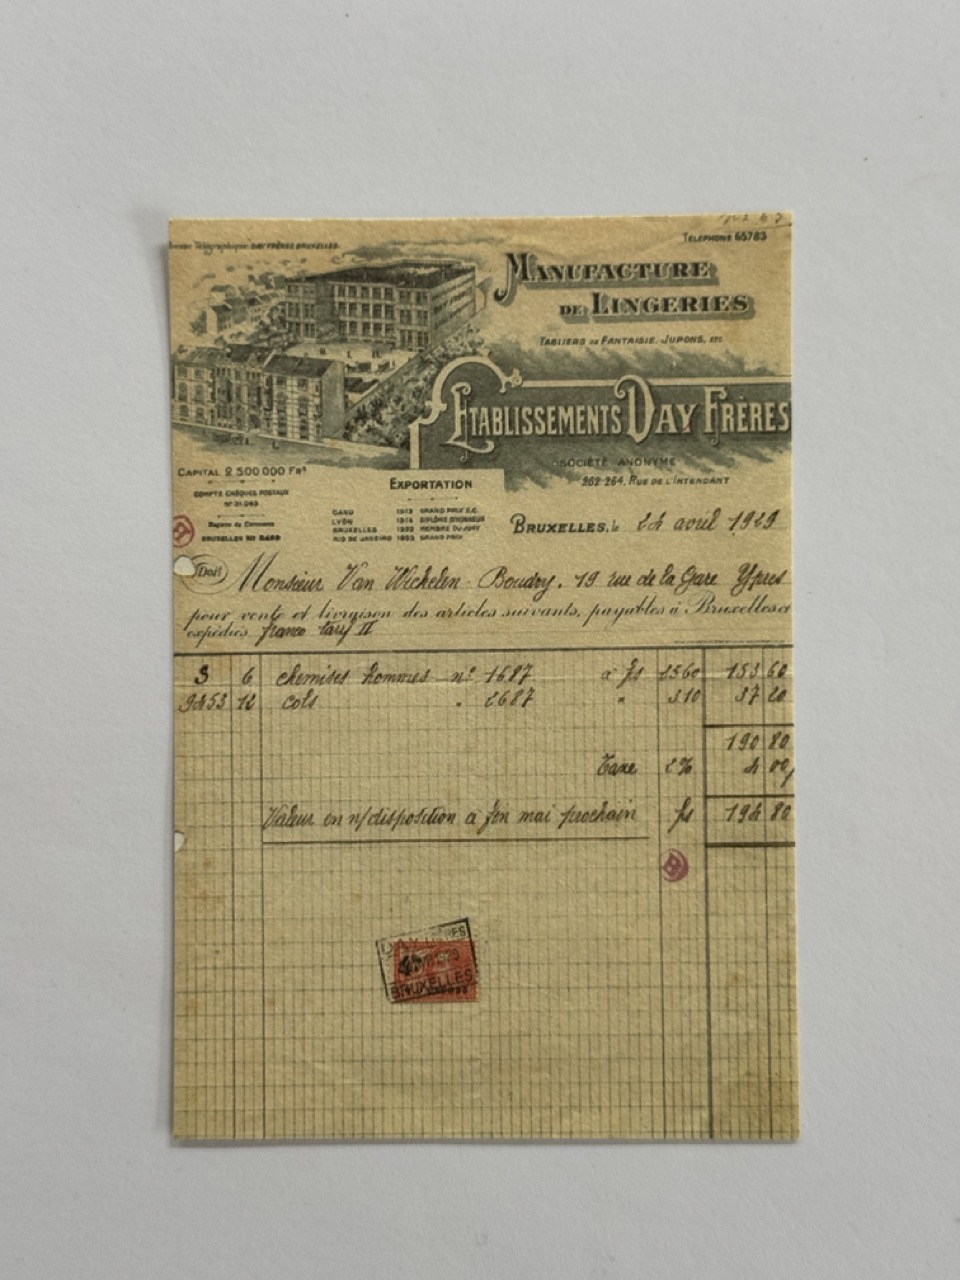 Adresse Télégraphique DAY FRÈRES BRUXELLES.
TÉLÉPHONE 65783
MANUFACTURE
DE LINGERIES
TABLIERS DE FANTAISIE, JUPONS, ETC
DAY FRÈRES
ÉTABLISSEMENTS DAY FRÈRES
SOCIÉTÉ ANONYME
262-264, RUE DE L'INTENDANT
CAPITAL 2.500.000 FRS
COMPTE CHÈQUES POSTAUX
Registre du Commerce
EXPORTATION
GAND 1913 GRAND PRIX
LYON 1914 DIPLÔME D'HONNEUR
BRUXELLES MEMBRE DU JURY
RIO DE JANEIRO GRAND PRIX
BRUXELLES, le 24 avril 1929
Doit Monsieur Van Wickelen-Boudry. 19 rue de la Gare Ypres
pour vente et livraison des articles suivants, payables à Bruxelles et
expédiés franco tarif II
3 6 chemises hommes n° 1687 à frs 2560 153 60
9453 12 cols " 2687 " 310 37 20
190 80
Taxe 2% 4 00
Valeur en n/disposition à fin mai prochain frs 194 80
DAY FRÈRES
BRUXELLES